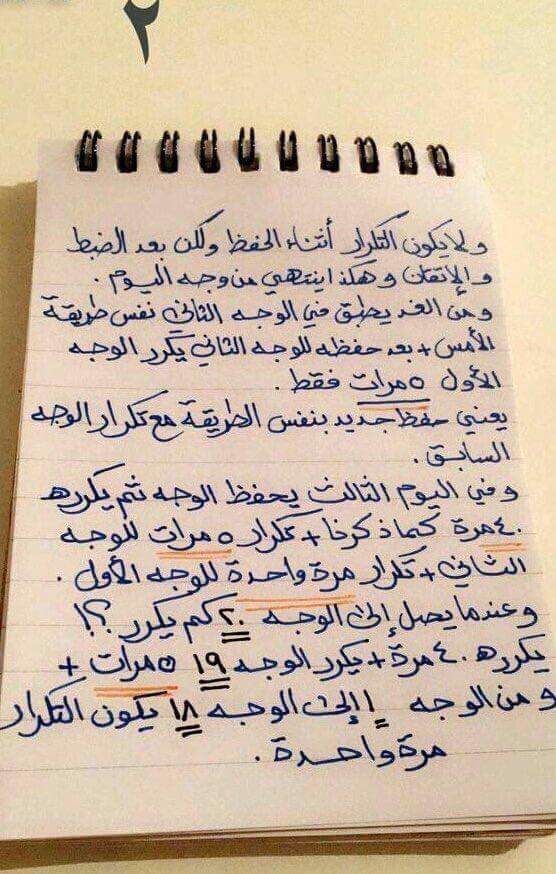 ٢
ولا يكون التكرار أثناء الحفظ ولكن بعد الضبط
والإتقان وهكذا ينتهي من وجه اليوم .
ومن الغد يطبق في الوجه الثاني نفس طريقة
الأمس + بعد حفظه للوجه الثاني يكرر الوجه
الأول ٥ مرات فقط .
يعني حفظ جديد بنفس الطريقة مع تكرار الوجه
السابق .
وفي اليوم الثالث يحفظ الوجه ثم يكرره
٤٠ مرة كما ذكرنا + تكرار ٥ مرات للوجه
الثاني + تكرار مرة واحدة للوجه الأول .
وعندما يصل إلى الوجه ٢٠ كم يكرر ؟!
يكرره ٤٠ مرة + يكرر الوجه ١٩ ٥ مرات +
ومن الوجه ١ إلى الوجه ١٨ يكون التكرار
مرة واحدة .